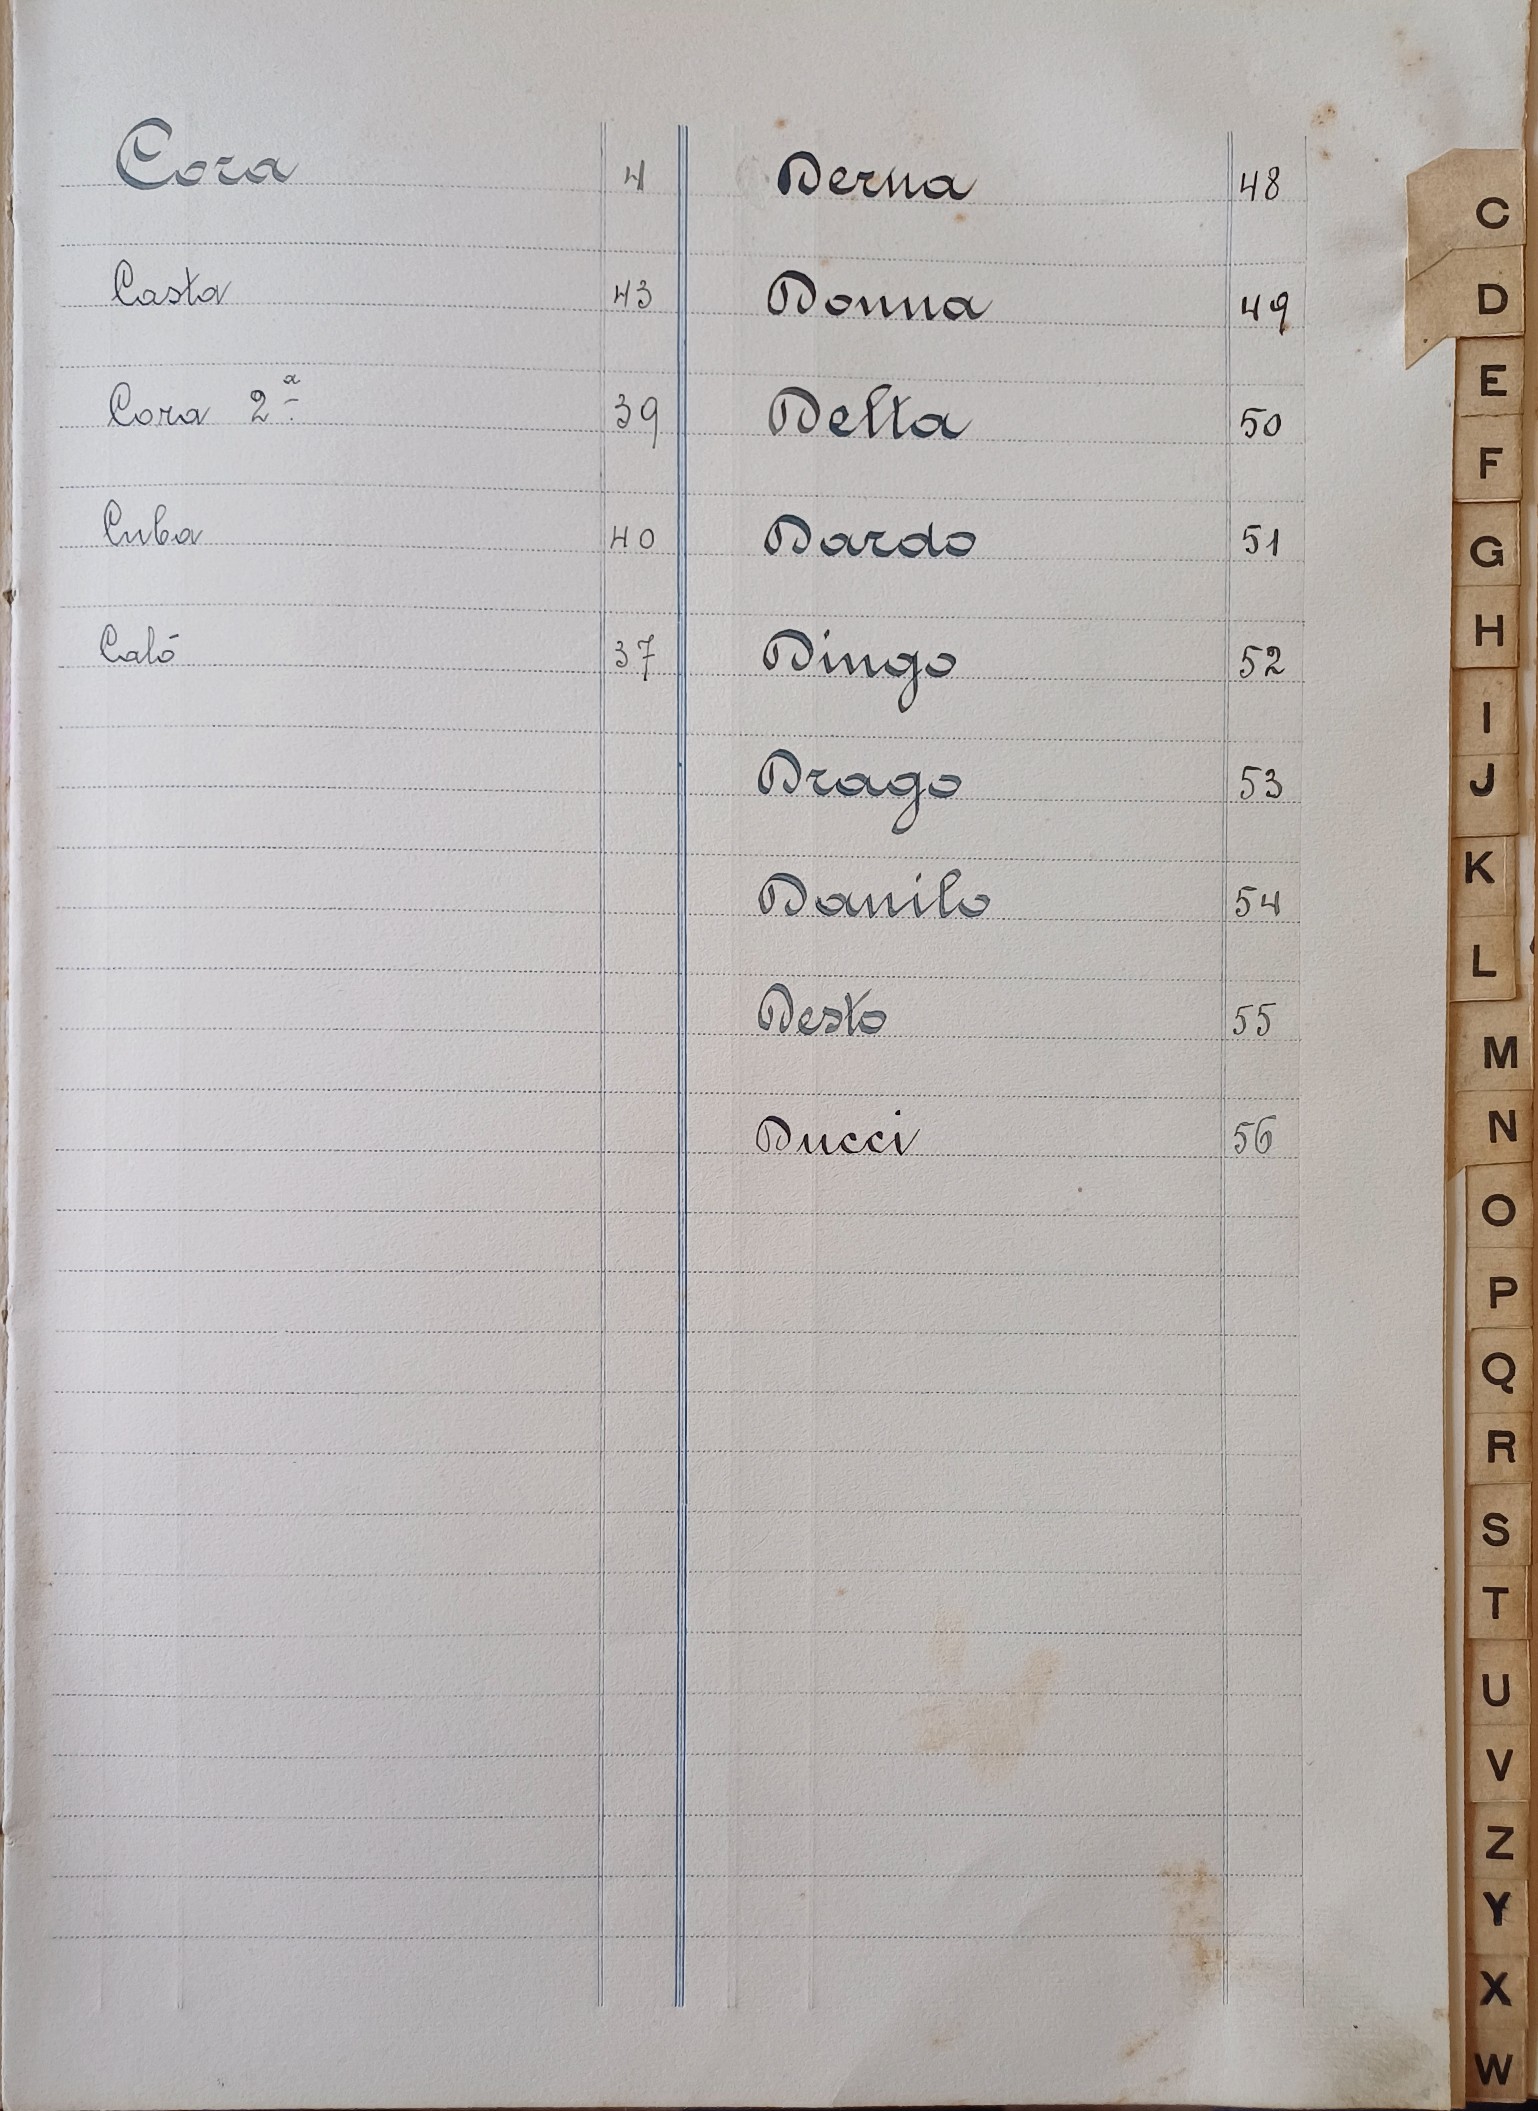 Cora 4
Casta 43
Cora 2ª 39
Cuba 40
Caló 37
Derna 48
Donna 49
Delta 50
Dardo 51
Dingo 52
Drago 53
Danilo 54
Desto 55
Ducci 56
C
D
E
F
G
H
I
J
K
L
M
N
O
P
Q
R
S
T
U
V
Z
Y
X
W